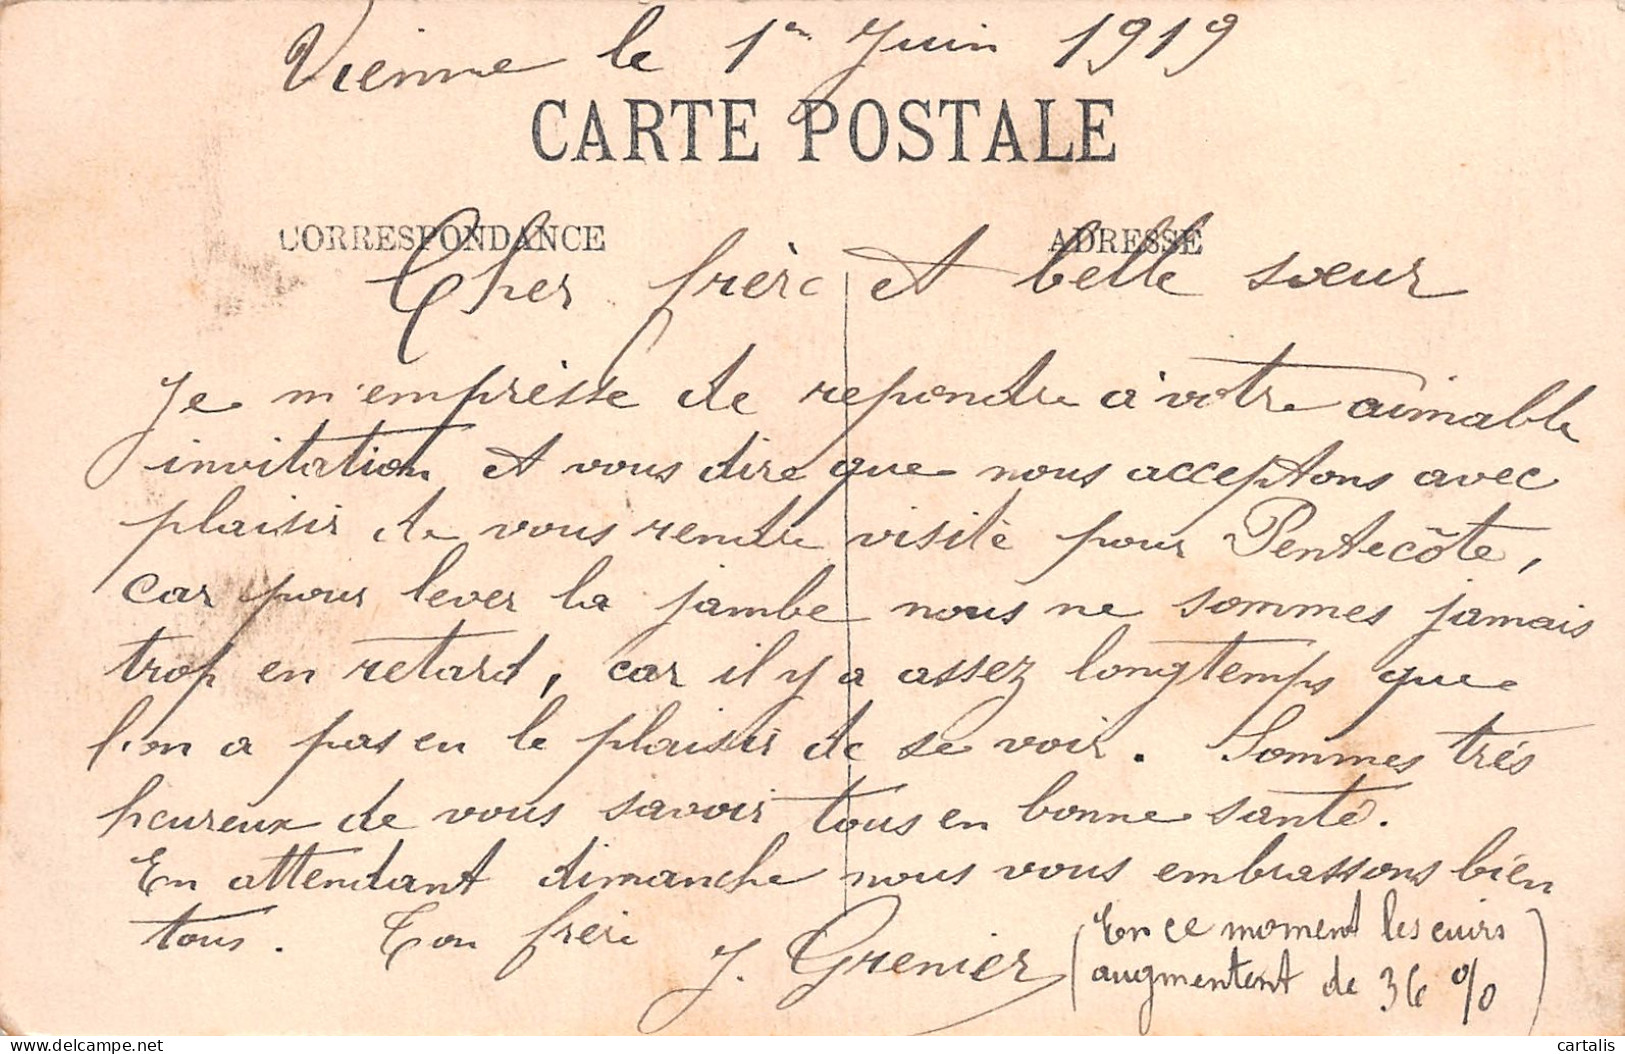 Vienne le 1er Juin 1919
CARTE POSTALE
CORRESPONDANCE
ADRESSE
Cher frère et belle sœur
Je m'empresse de repondre à votre aimable
invitation et vous dire que nous acceptons avec
plaisir de vous rendre visite pour Pentecôte,
car pour lever la jambe nous ne sommes jamais
trop en retard, car il y a assez longtemps que
l'on a pas eu le plaisir de se voir. Sommes très
heureux de vous savoir tous en bonne santé.
En attendant dimanche nous vous embrassons bien
tous. Ton frère J. Grenier
(En ce moment les cuirs
augmentent de 36 %)
cartalis
delcampe.net